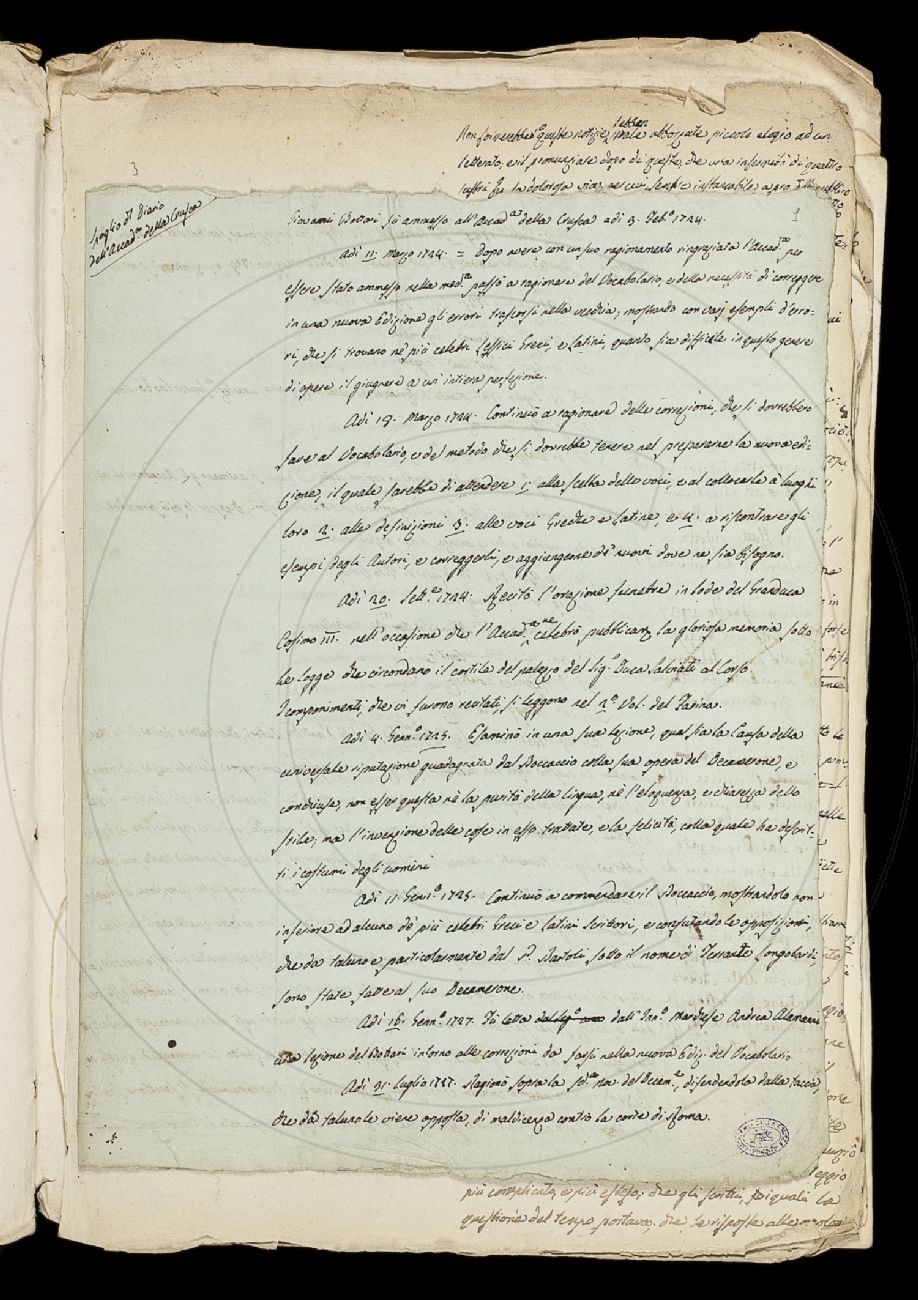 Non si crederebbe queste notizie, male abbozzate piccolo elogio ad un
letterato, e il pronunziare dopo di queste, che una infermità di quattro
lustri
3
1
Spoglio del Diario
dell'Accad.ª della Crusca
Giovanni Bottari fù ammesso all'Accad.ª della Crusca adi 3. Feb.º 1724.
Adi 11. Marzo 1724. = Dopo avere con un suo ragionamento ringraziata l'Accad.ª per
essere stato ammesso nella med.ª passò a ragionare del Vocabolario, e della necessità di correggere
in una nuova Edizione gli errori trascorsi nella vecchia; mostrando con varj esempli d'erro-
ri, che si trovano ne' più celebri Lessici Greci, e Latini, quanto sia difficile in questo genere
di opere il giugnere a un' intiera perfezione.
Adi 18. Marzo 1724. Continuò a ragionare delle correzioni, che si dovrebbero
fare al Vocabolario, e del metodo che si dovrebbe tenere nel preparare la nuova edi-
zione, il quale sarebbe di attendere 1. alla scelta delle voci, e al collocarle a' luoghi
loro 2. alle definizioni 3. alle voci Greche e Latine, e 4. a riscontrare gli
esempi degli Autori, e correggerli, e aggiungerne de' nuovi dove ne sia bisogno.
Adi 20. Sett.e 1724. Recitò l'orazione funebre in lode del Granduca
Cosimo III. nell'occasione che l'Accad.ª celebrò pubblicam.ne la gloriosa memoria sotto
le logge che circondano il cortile del palazzo del Sig.º Duca Salviati al Corso.
I componimenti, che vi furono recitati si leggono nel 2.º Vol. del Farina.
Adi 4. Genn.º 1725. Esaminò in una sua lezione, qual sia la Causa della
universale riputazione guadagnata dal Boccaccio colla sua opera del Decamerone, e
concluse, non esser questa nè la purità della lingua, nè l'eloquenza, e chiarezza dello
stile; ma l'invenzione delle cose in esso trattate, e la felicità, colla quale ha descrit-
ti i costumi degli uomini
Adi 11. Genn.º 1725. Continuò a commendare il Boccaccio, mostrandolo non
inferiore ad alcuno de' più celebri Greci e Latini Scrittori, e confutando le opposizioni,
che da taluno e particolarmente dal P. Bartoli sotto il nome di Ferrante Longobardi,
sono state fatte al suo Decamerone.
Adi 16. Genn.º 1727. Fù letta dal Sig.º dall'Inn.º Marchese Andrea Alamanni
una lezione del Bottari intorno alle correzioni da farsi nella nuova Ediz. del Vocabolario
Adi 21. Luglio 1727. Ragionò sopra la p.ª nov. del Decam.e, difendendola dalla taccia,
che da taluno le viene opposta, di maldicenza contro la corte di Roma.
più complicata, e più estesa; che gli scritti, quali la
questione del tempo portava; che le risposte alle